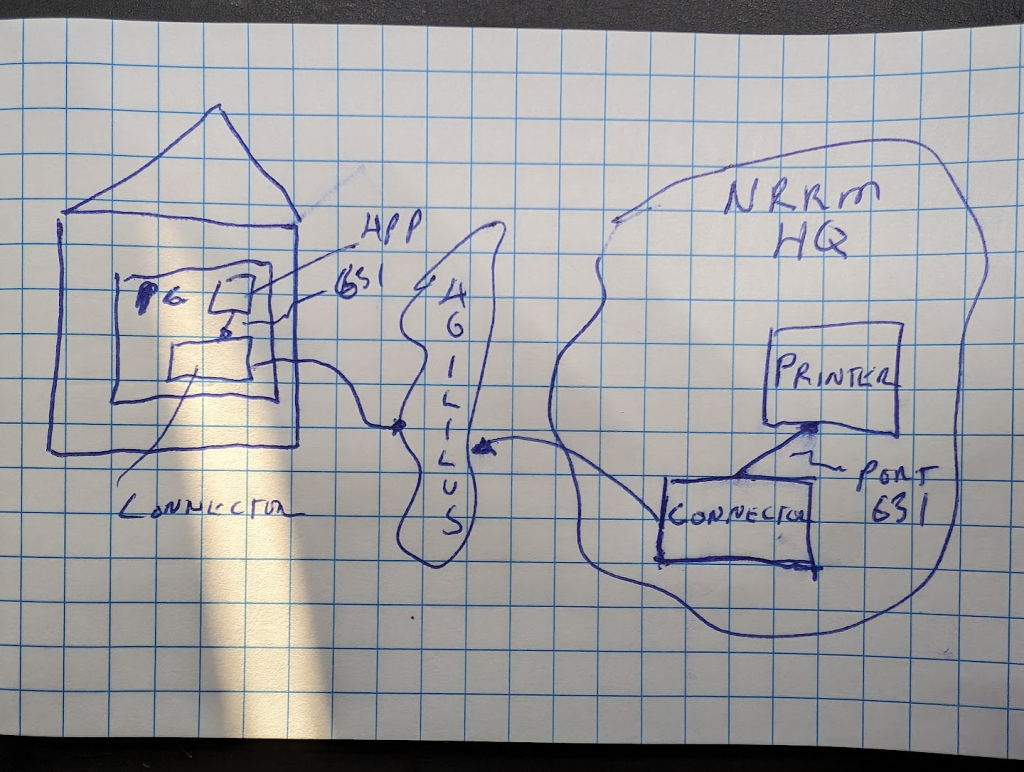 APP
631
PC
CONNECTOR
AGILILUS
NRRM
HQ
PRINTER
CONNECTOR
PORT
631